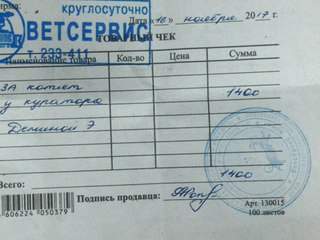 ирма:
круглосуточно
Дата «16» ноября 2017 г.
ВЕТСЕРВИС
т. 233-411
ТОВАРНЫЙ ЧЕК
Наименование товара Кол-во Цена Сумма
ЗА котят 1400
у куратора
Деминой Э
1400
Всего:
Подпись продавца:
Арт. 130015
100 листов
606224 050379